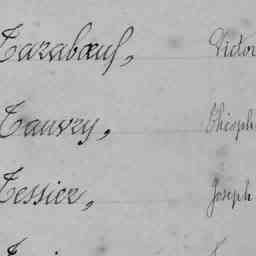 Tarabœuf, Victor
Tauvry, Théoph
Tessier, Joseph